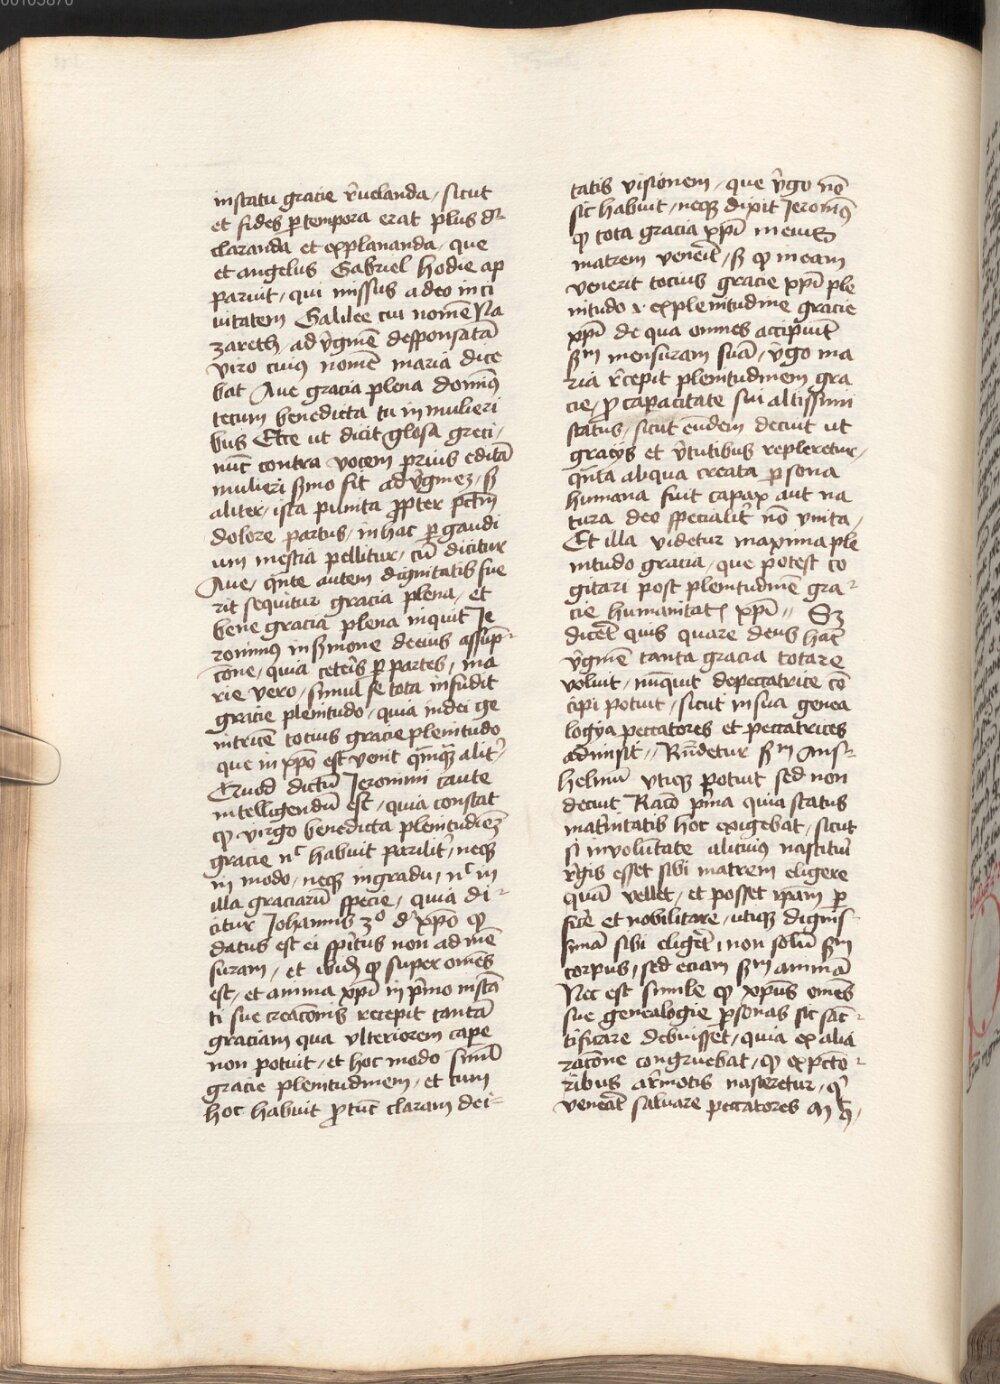 00103870
in statu gracie r̄uelanda / sicut
et fides ꝑ tempora erat plus d̄r
claranda et explananda / que
et angelus Gabriel hodie ap
paruit / qui missus a deo in ci
uitatem Galilee cui nomē Na
zareth / ad v̄gīnē desponsatā
viro cuius nomē maria dice
bat Aue gracia plena domīꝰ
tecum benedicta tu in mulieri
bus Et ut dicit glosa greci /
nūc contra vocem prius editā
mulieri ẜmo fit ad v̄ginez / sꝫ
aliter / ista punita ꝓpter pctm̄
dolore partus / in hac ꝑ gaudi
um mesticia pellitur / cū dicitur
Aue / qn̄te autem dignitatis fue
rit sequitur gracia plena / et
bene gracia plena inquit Je
ronimus in ẜmone de eius assūp
cōne / quia ceteris ꝑ partes / ma
rie vero / simul se tota infudit
gracie plenitudo / quia in dei ge
nitricē tocius gracie plenitudo
que in xp̄o est venit q̄muis alit̄ /
Quod dictū Jeronimi caute
intelligendū est / quia constat
ꝙ virgo benedicta plenitudiez
gracie nec habuit parilit̄ / neqꝫ
in modo / neqꝫ in gradu / nec in
illa graciarū specie / quia di
citur Johannis 3º de xp̄o ꝙ
datus est ei spūs non ad mē
suram / et ibidē ꝙ super omēs
est / et anima xp̄i in pīmo instā
ti sue creacōnis recepit tantā
graciam qua vlteriorem cape
non potuit / et hoc modo simul
gracie plenitudinem / et cum
hoc habuit ꝓ tūc claram dei
tatis visionem / que v̄go nō
sic habuit / neqꝫ dixit Jeronīꝰ
ꝙ tota gracia xp̄i in eius
matrem venerit / sꝫ ꝙ in eam
venerit tocius gracie xp̄i ple
nitudo et ex plenitudine gracie
xp̄i de qua omnes acciperūt
scdm̄ mensuram suā / v̄go ma
ria r̄cepit plenitudinem gra
cie / ꝓ capacitate sui altissimi
status / sicut eundem decuit ut
gracijs et v̄tutibus repleretur /
qn̄ta aliqua creata ꝑsona
humana fuit capax aut na
tura deo specialit̄ nō vnita /
Et illa videtur maxima ple
nitudo gracia / que potest co
gitari post plenitudinē gra
cie humanitatis xp̄i // Sꝫ
diceret quis quare deus hanc
v̄ginē tanta gracia dotare
voluit / nūquit de peccatrice cō
cipi potuit / sicut in sua genea
logya peccatores et peccatrices
admisit // Rn̄detur scdm̄ Ans
helmū vtiqꝫ potuit sed non
decuit Racō pīma quia status
mat̄nitatis hoc exigebat / sicut
si in volūtate alicuius nascituri
r̄gis esset sibi matrem eligere
quā vellet / et posset ip̄am ꝑ
fice et nobilitare / utiqꝫ dignis
simā sibi eligeret / non solū scdm̄
corpus / sed eciam scdm̄ animā
Nec est simile ꝙ xp̄us omēs
sue genealogie ꝑsonas sic sāc
tificare debuisset / quia ex alia
racōne congruebat / ꝙ ex pcto
ribus a r̄motis nasceretur / qui
veneāt saluare peccatores